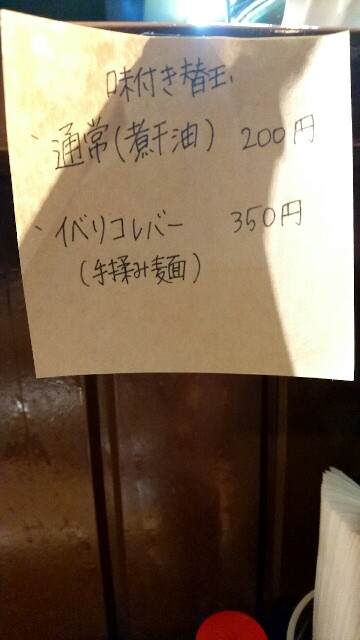 味付き替玉
、通常(煮干油) 200円
、イベリコレバー 350円
(手揉み麺)